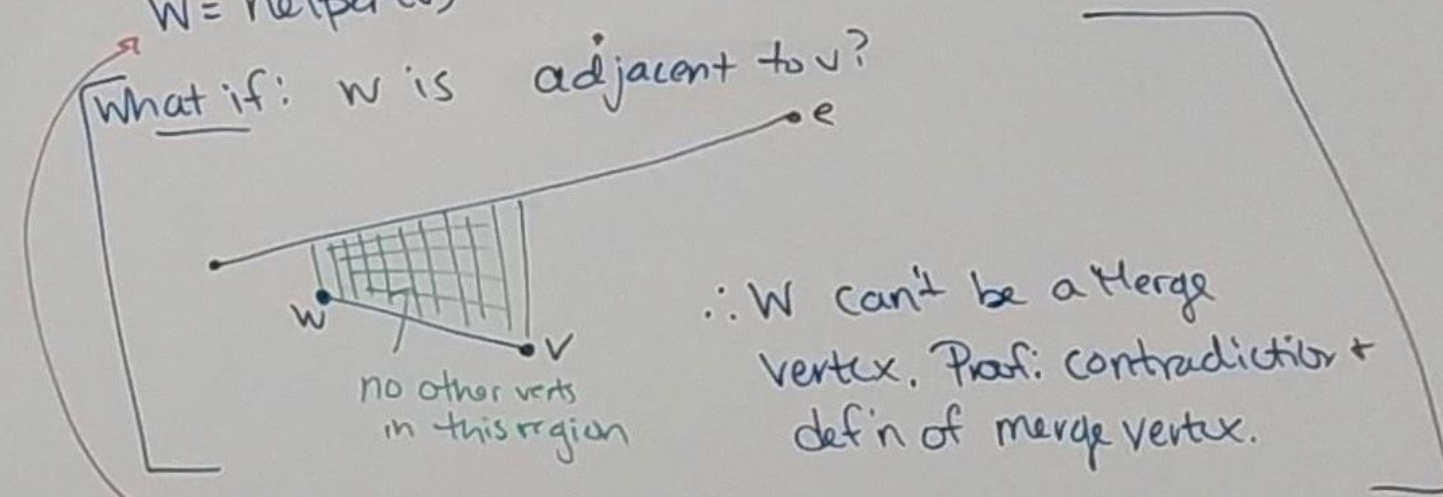 W = helper(e)
What if: w is adjacent to v?
e
w
v
no other verts
in this region
∴ W can't be a Merge
vertex. Proof: contradiction +
def'n of merge vertex.